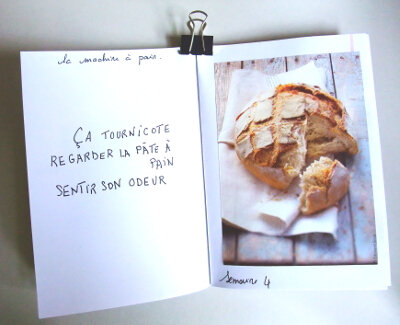 la machine à pain.
ÇA TOURNICOTE
REGARDER LA PÂTE À
PAIN
SENTIR SON ODEUR
Semaine 4